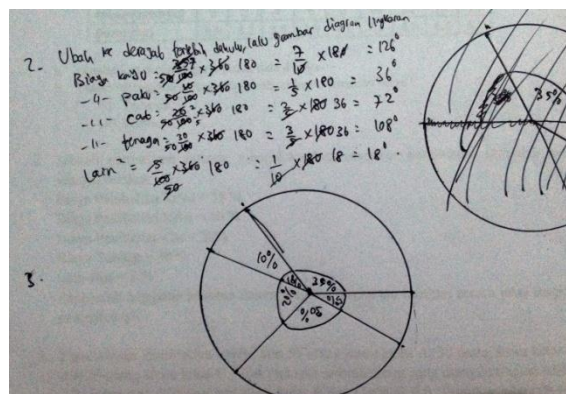 2. Ubah ke derajat terlebih dahulu, lalu gambar diagram lingkaran
Biaya kayu = 35/100 x 360 180 = 7/10 x 180 = 126°
-11- paku = 10/100 x 360 180 = 1/5 x 180 = 36°
-11- cat = 20/100 x 360 180 = 2/5 x 180 36 = 72°
-11- tenaga = 30/100 x 360 180 = 3/5 x 180 36 = 108°
Lain² = 5/100 x 360 180 = 1/10 x 180 18 = 18°.
50
35%
3.
10%
20%
30%